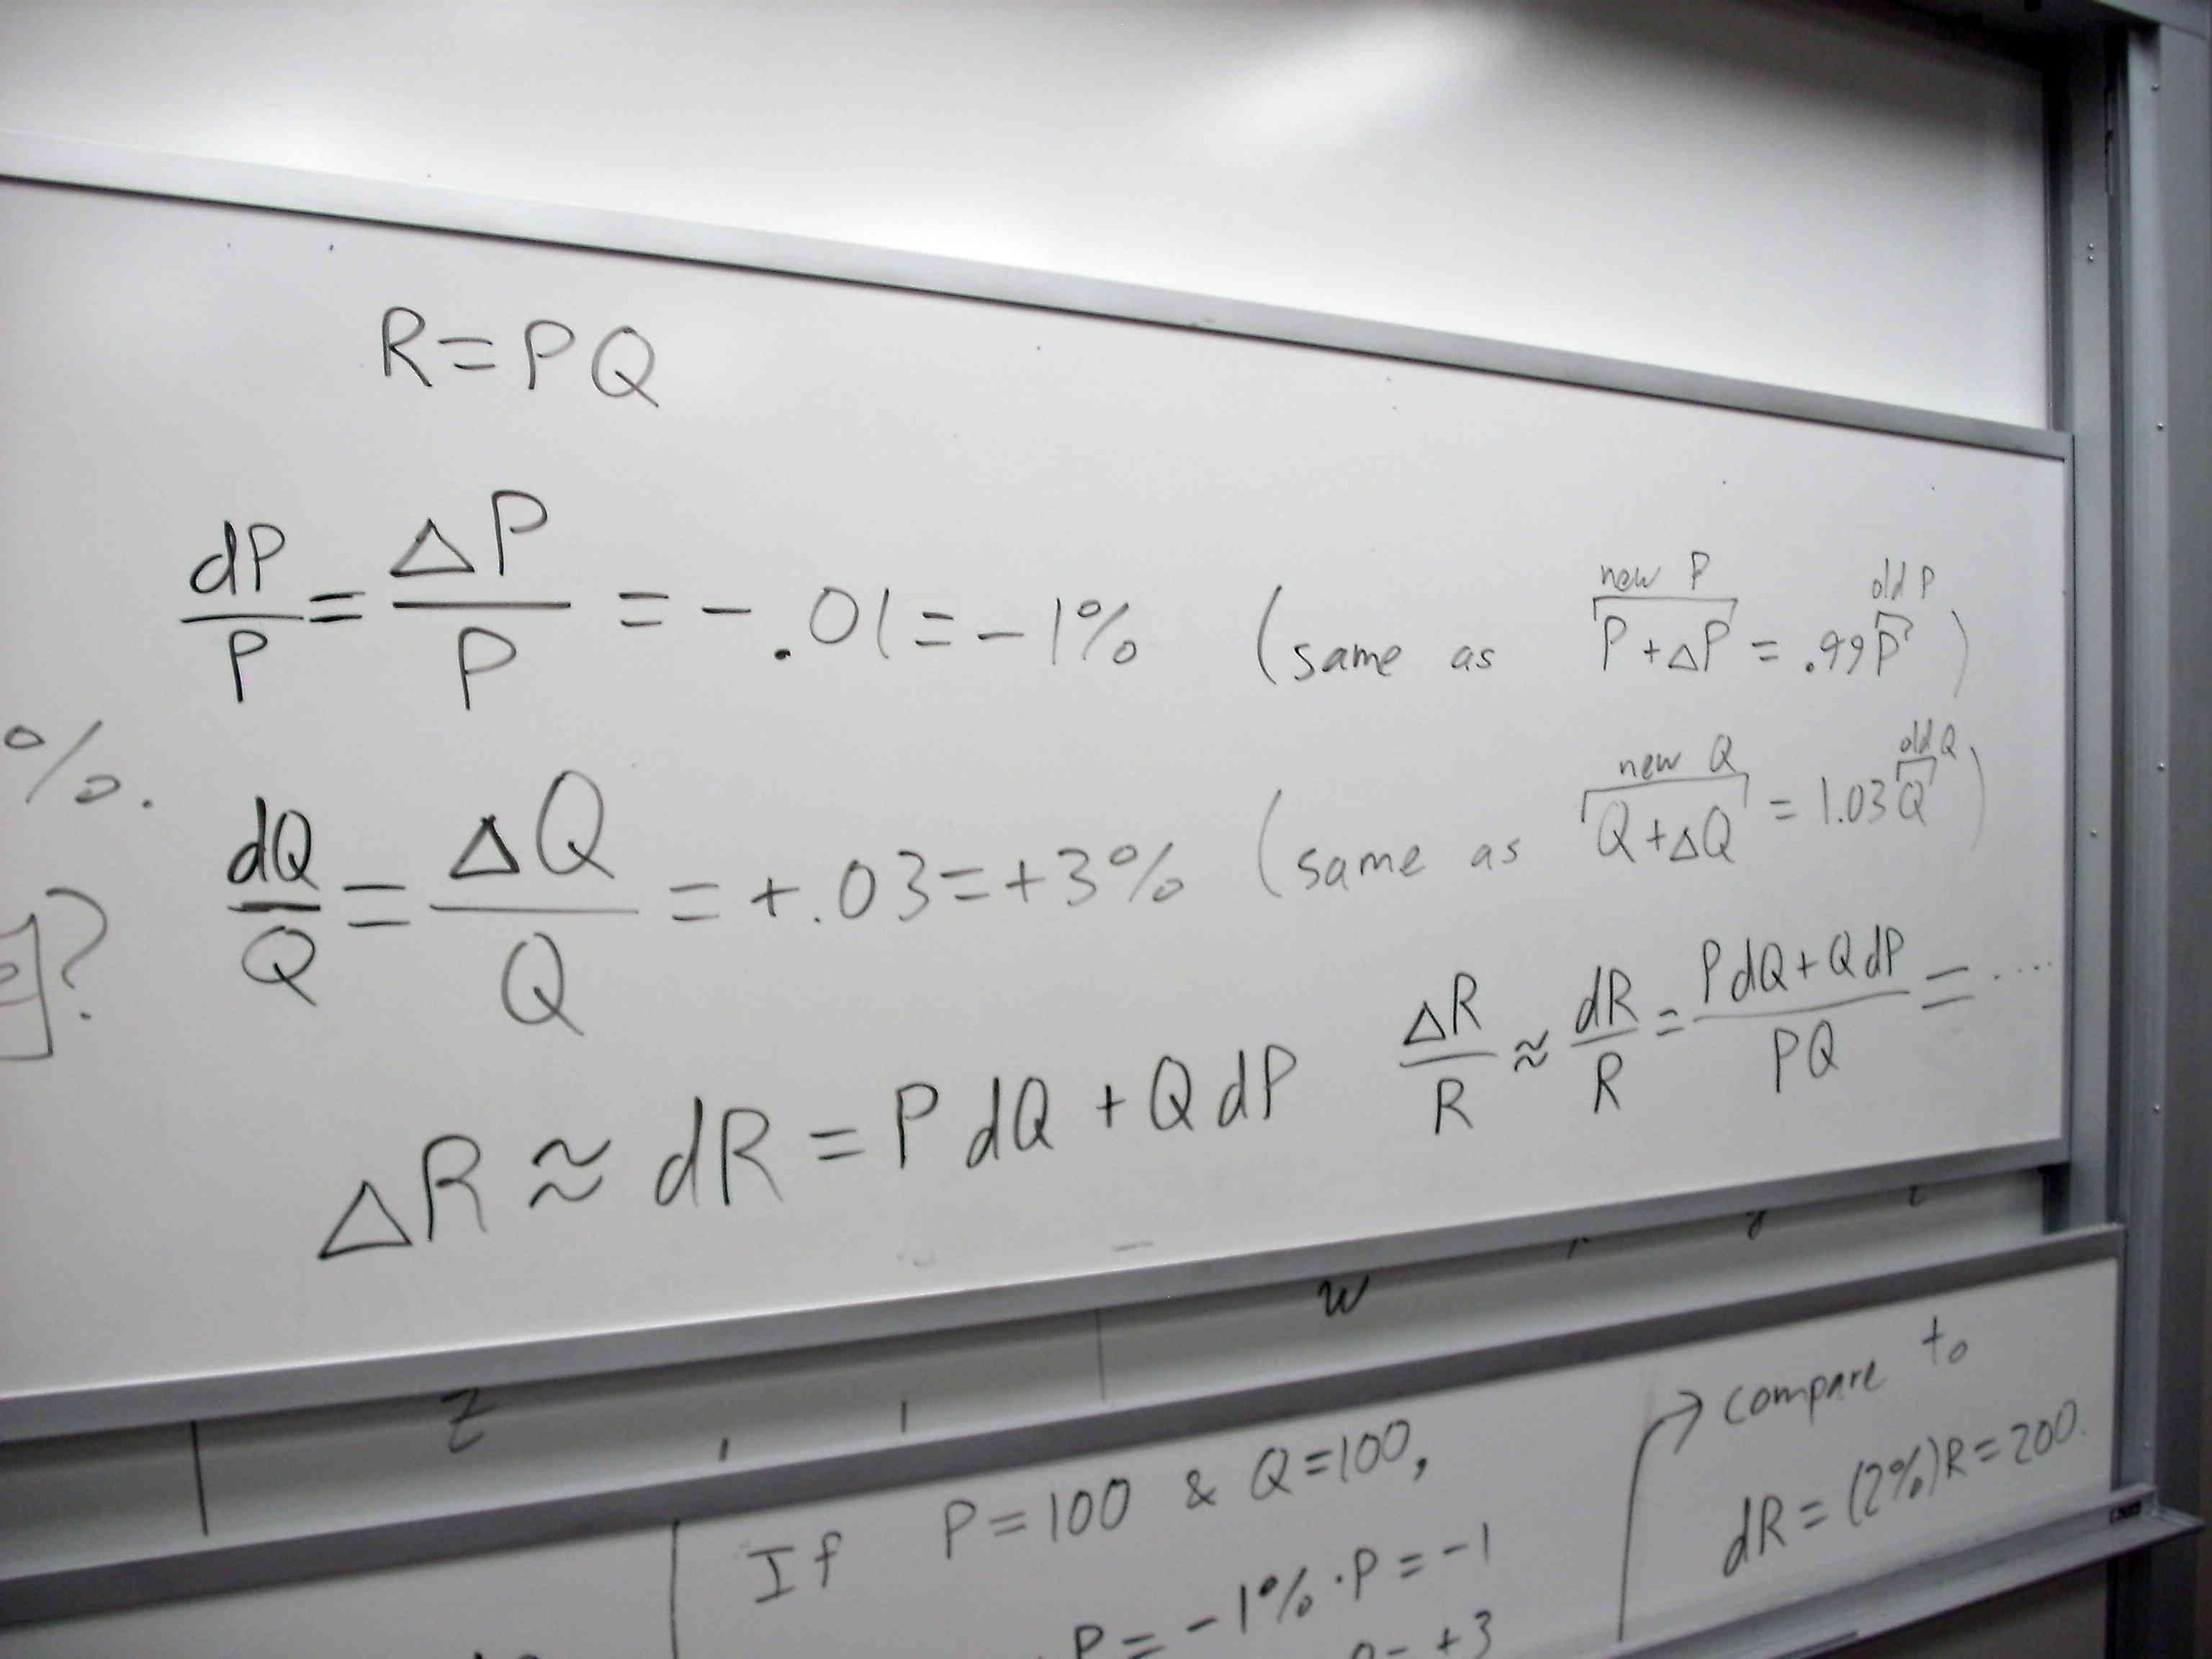 R=PQ
dP/P = ΔP/P = -.01 = -1% (same as P+ΔP = .99P)
new P old P
%.
dQ/Q = ΔQ/Q = +.03 = +3% (same as Q+ΔQ = 1.03Q)
new Q old Q
?
ΔR ≈ dR = P dQ + Q dP
ΔR/R ≈ dR/R = (P dQ + Q dP)/PQ = ....
w
z
If P=100 & Q=100,
P = -1%·P = -1
= +3
compare to
dR = (2%)R = 200.